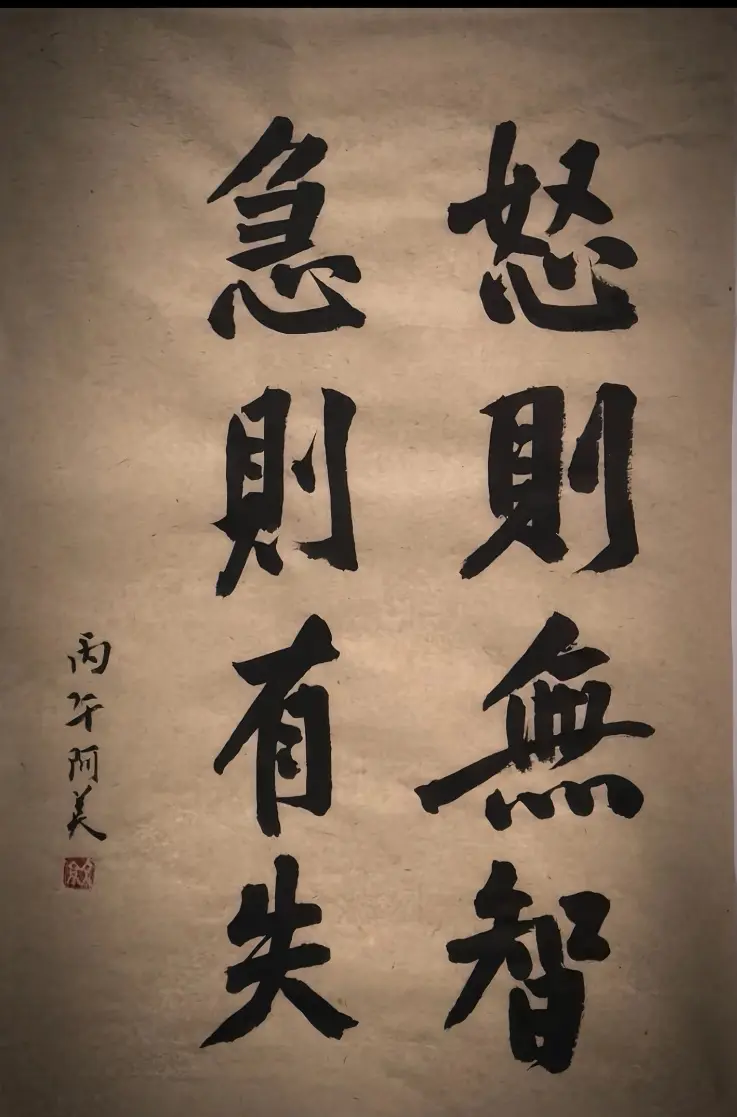 怒則無智
急則有失
丙午阿美